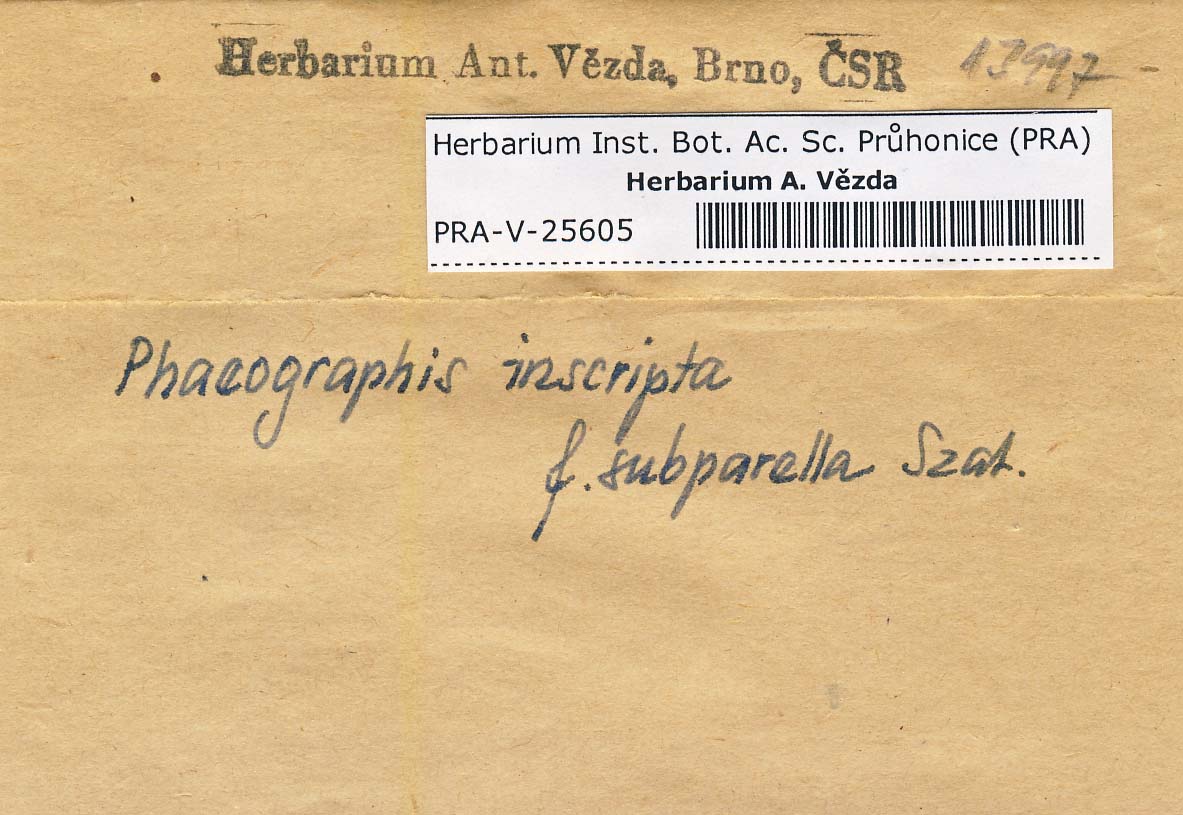 Herbarium Ant. Vězda, Brno, ČSR 13997
Herbarium Inst. Bot. Ac. Sc. Průhonice (PRA)
Herbarium A. Vězda
PRA-V-25605
Phaeographis inscripta
f. subparella Szat.